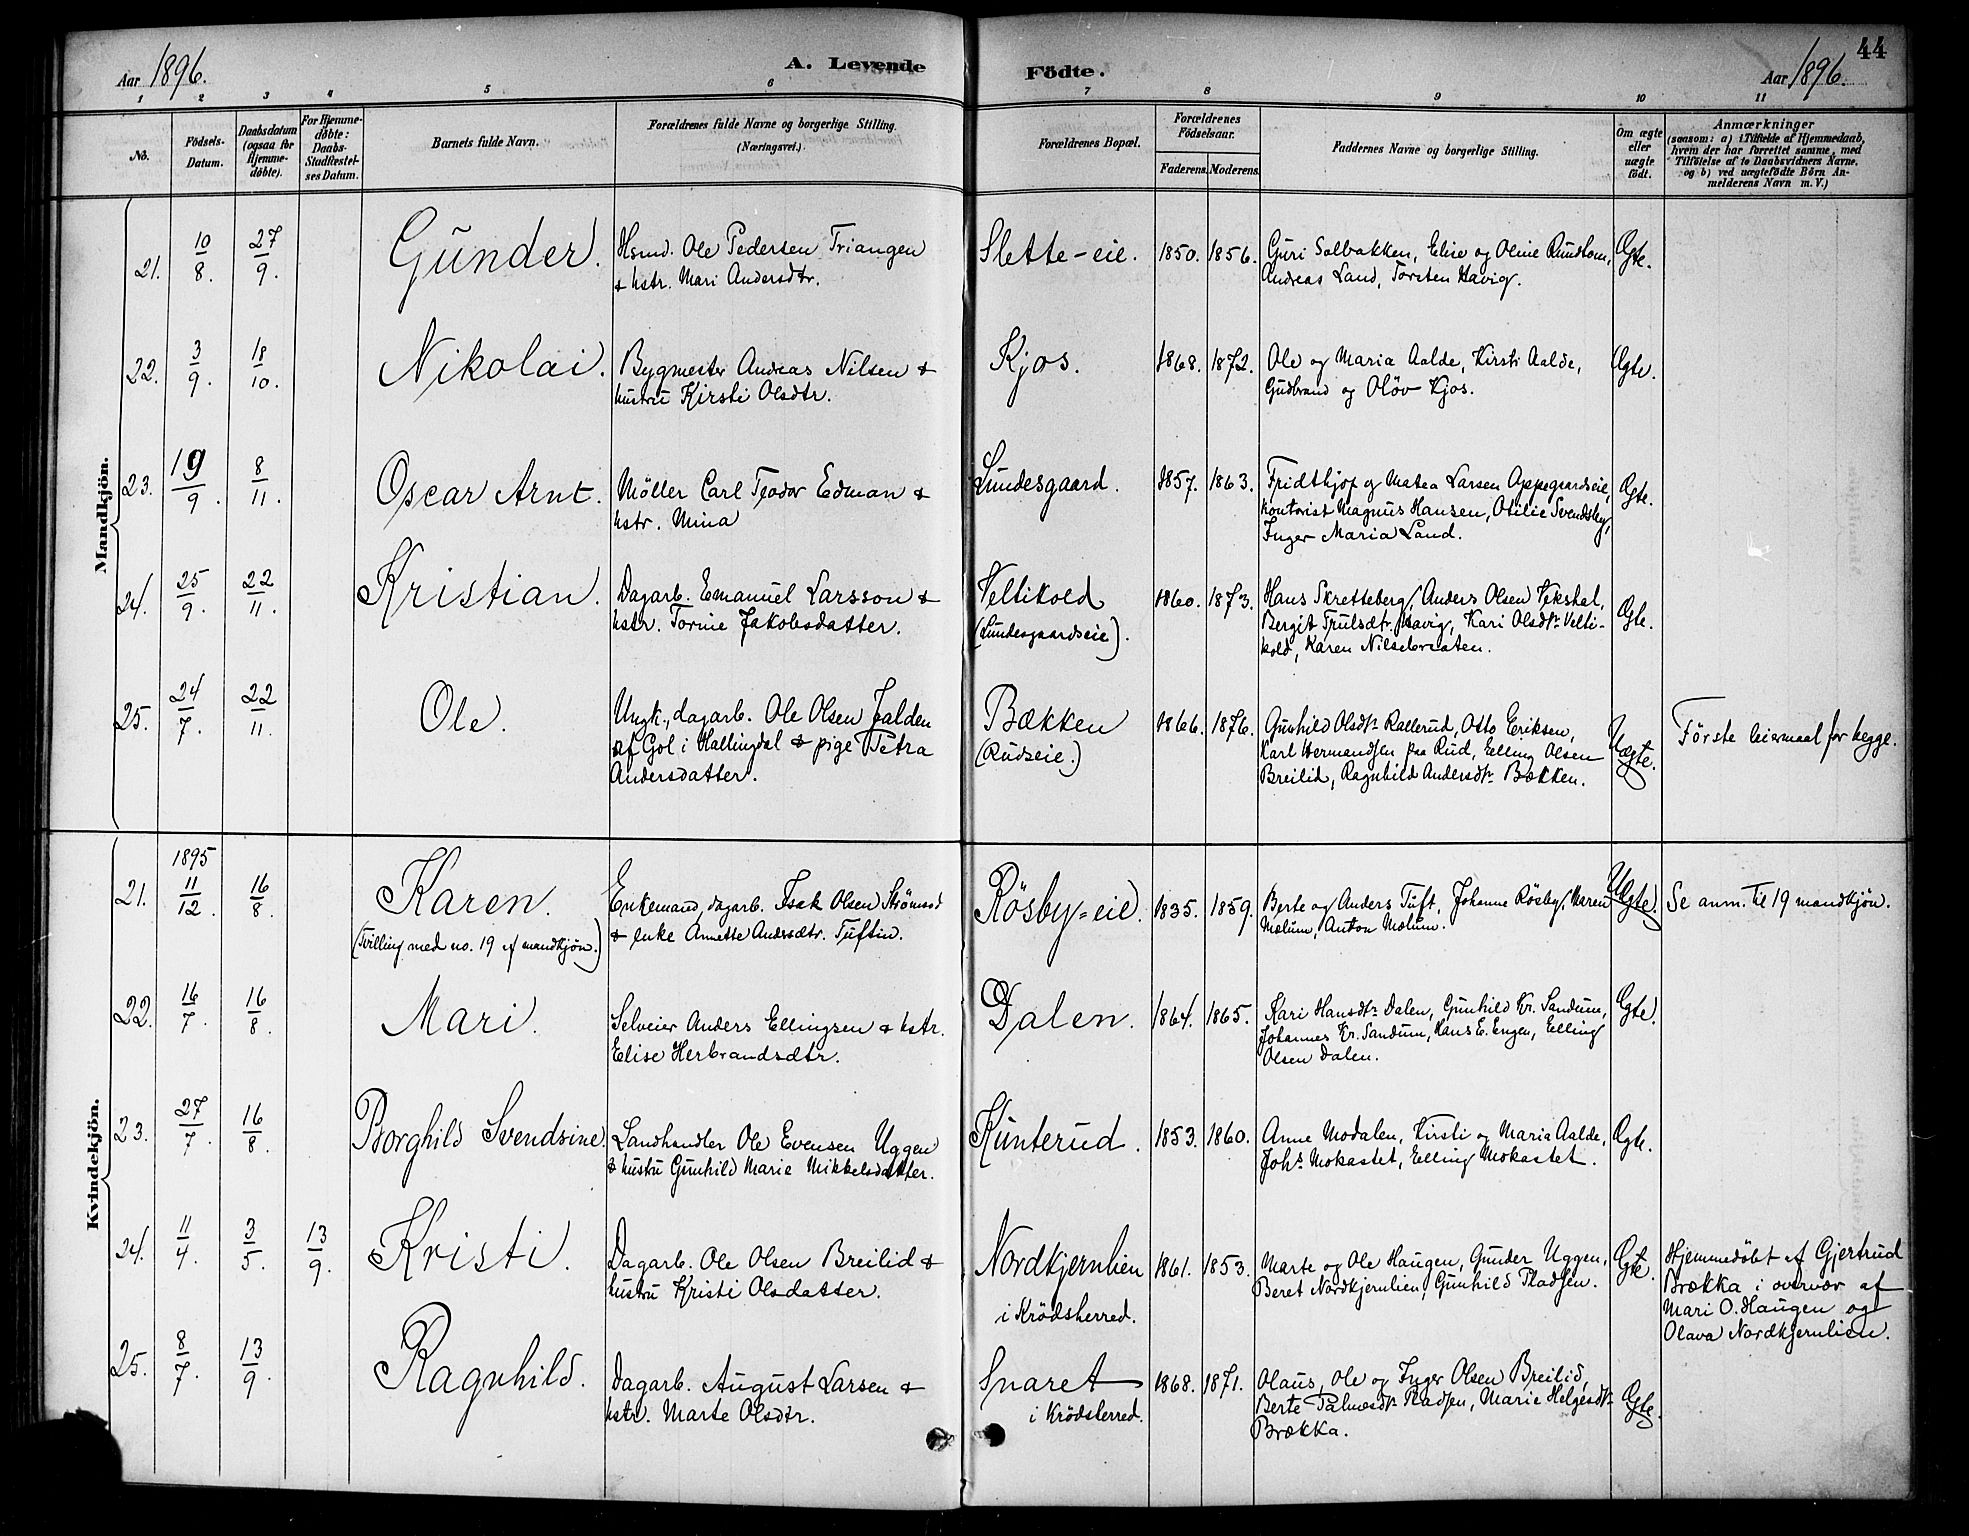 44
Aar 1896. A. Levende Födte. Aar 1896.
1 2 3 4 5 6 7 8 9 10 11
No.
Födsels-
Datum.
Daabsdatum
(ogsaa for
Hjemme-
døbte).
For Hjemme-
døbte:
Daabs-
Stadfæstel-
ses Datum.
Barnets fulde Navn.
Forældrenes fulde Navne og borgerlige Stilling.
(Næringsvei.)
Forældrenes Bopæl.
Forældrenes
Födselsaar.
Faderens. Moderens.
Faddernes Navne og borgerlige Stilling.
Om ægte
eller
uægte
födt.
Anmærkninger
(saasom: a) i Tilfælde af Hjemmedaab,
hvem der har forrettet samme, med
Tilföielse af to Daabsvidners Navne,
og b) ved uægtefödte Börn An-
melderens Navn m. V.)
Mandkjön.
21. 10/8. 27/9. Gunder. Hsmd. Ole Pedersen Triangen
& hstr. Mari Andersdtr.
Slette-eie. 1850. 1856. Guri Solbakken, Elise og Oline Rundtom,
Andreas Land, Torsten Havig.
Ægte.
22. 3/9. 18/10. Nikolai. Bygmester Andreas Nilsen &
hustru Kirsti Olsdtr.
Kjos. 1868. 1872. Ole og Maria Aalde, Kirsti Aalde,
Gudbrand og Olöv Kjos.
Ægte.
23. 19/9. 8/11. Oscar Arnt. Möller Carl Teodor Edman &
hstr. Mina
Lundesgaard. 1857. 1863. Fridthjof og Matea Larsen Oppegaardseie,
kontorist Magnus Hansen, Otilie Svendsby,
Inger Maria Land.
Ægte.
24. 25/9. 22/11. Kristian. Dagarb. Emanuel Larsson &
hstr. Torine Jakobsdatter.
Veltikold
(Lundesgaardseie).
1860. 1873. Hans Skretteberg, Anders Olsen Vekshal,
Bergit Trulsdtr. Havig, Kari Olsdtr. Velti-
kold, Karen Nilsebraaten.
Ægte.
25. 24/7. 22/11. Ole. Ungk., dagarb. Ole Olsen Jalden
af Gol i Hallingdal & pige Petra
Andersdatter.
Bækken
(Rudseie.)
1866. 1876. Gunhild Olsdtr. Rallerud, Otto Eriksen,
Karl Hermandsen paa Rud, Elling Olsen
Breilid, Ragnhild Andersdtr. Bækken.
Uægte. Förste leiermaal for begge.
Kvindekjön.
21. 1895 11/12. 16/8. Karen.
(Tvilling med no. 19 af mandkjön.)
Enkemand, dagarb. Isak Olsen Strömsod
& enke Annette Andersdtr. Tuftin.
Rösby-eie. 1835. 1859. Berte og Anders Tuft, Johanne Rösby, Maren
Mælum, Anton Mælum.
Uægte. Se anm. til 19 mandkjön.
22. 16/7. 16/8. Mari. Selveier Anders Ellingsen & hstr.
Elise Herbrandsdtr.
Dalen. 1864. 1865. Kari Hansdtr. Dalen, Gunhild Kr. Sandum,
Johannes Kr. Sandum, Hans E. Engen, Elling
Olsen Dalen.
Ægte.
23. 27/7. 16/8. Borghild Svendsine. Landhandler Ole Evensen Uggen
& hustru Gunhild Marie Mikkelsdatter.
Kunterud. 1853. 1860. Anne Modalen, Kirsti og Maria Aalde,
Johs Mokastet, Elling Mokastet.
Ægte.
24. 11/4. 3/5. 13/9. Kristi. Dagarb. Ole Olsen Breilid &
hustru Kristi Olsdatter.
Nordkjernlien
i Krödsherred.
1861. 1853. Marte og Ole Haugen, Gunder Uggen,
Beret Nordkjernlien, Gunhild Pladsen.
Ægte. Hjemmedöbt af Gjertrud
Brækka i overvær af
Mari O. Haugen og
Olava Nordkjernlien.
25. 8/7. 13/9. Ragnhild. Dagarb. August Larsen &
hstr. Marte Olsdtr.
Snaret
i Krödsherred.
1868. 1871. Olaus, Ole og Inger Olsen Breilid,
Berte Palmesdtr. Pladsen, Marie Helgesdtr.
Brækka.
Ægte.